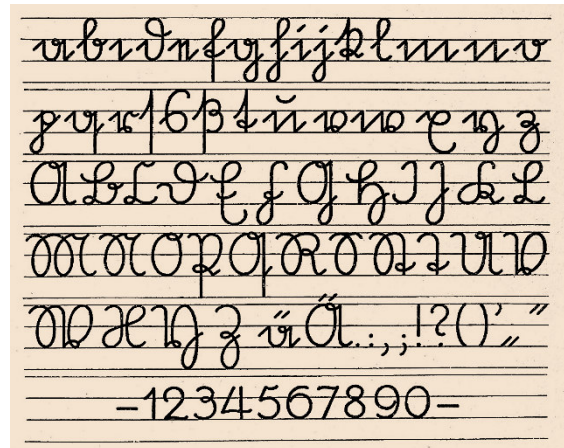 a b c d e f g h i j k l m n o
p q r ſ s ß t u v w x y z
A B C D E F G H I J K L
M N O P Q R S St T U V
W X Y Z ä Ä . : , ; ! ? ( ) ' „ “
-1234567890-